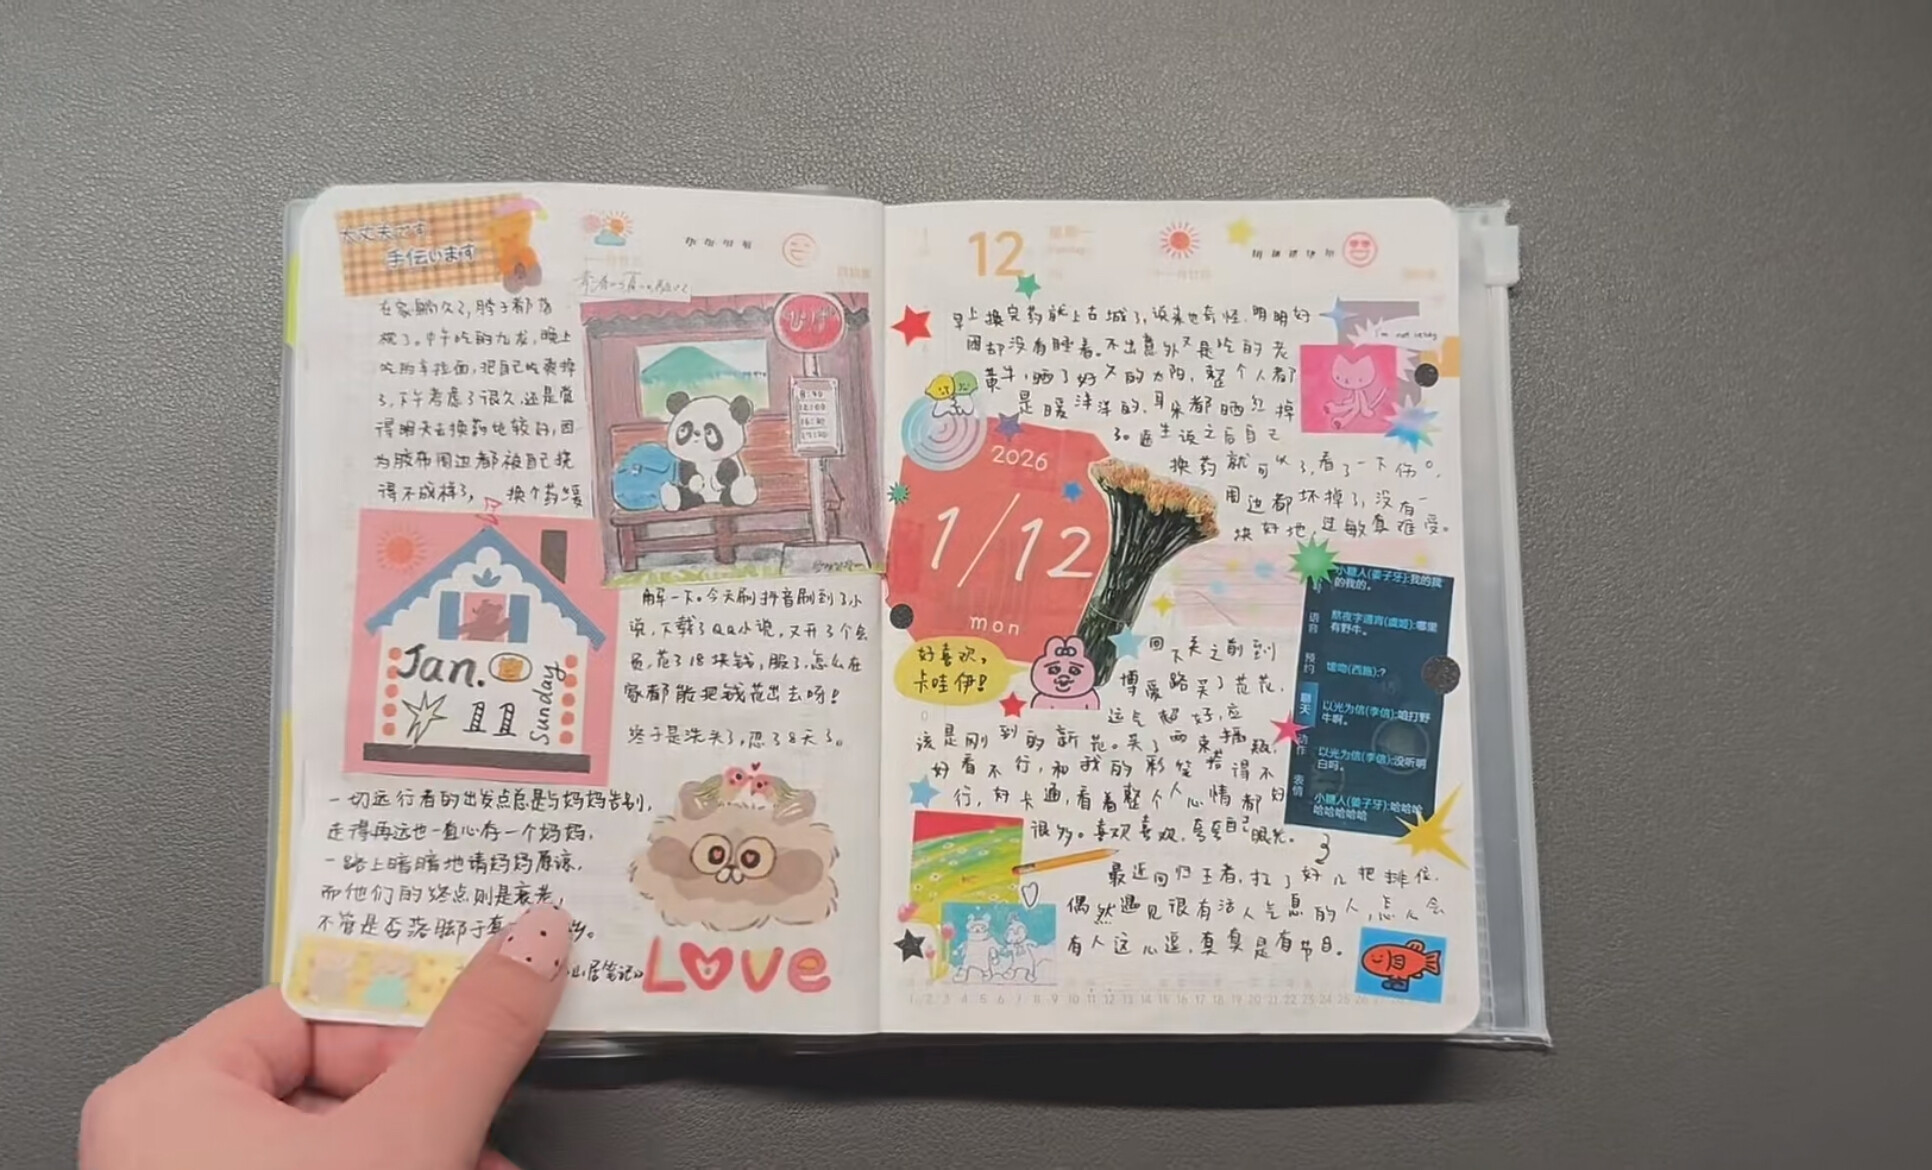 大丈夫です
手伝います
在家躺久了,脖子都落
枕了。中午吃的九龙,晚上
吃的羊拉面,把自己吃爽掉
了,下午考虑了很久,还是觉
得明天去换药比较好,因
为胶布周边都被自己挠
得不成样了, 换个药缓
8:40
12:00
Jan.
11
Sunday
解一下。今天刷抖音刷到了小
说,下载了QQ小说,又开了个会
员,花了18块钱,服了,怎么在
家都能把钱花出去呀!
终于是洗头了,忍了8天了。
一切远行者的出发点总是与妈妈告别,
走得再远也一直心存一个妈妈,
一路上暗暗地请妈妈原谅,
而他们的终点则是衰老,
不管是否落脚于
山居笔记》
LOVE
12
星期一
早上换完药就上古城了,说来也奇怪,明明好
困却没有睡着。不出意外又是吃的老
黄牛,晒了好久的太阳,整个人都
是暖洋洋的,耳朵都晒红掉
了。医生说之后自己
换药就可以了,看了一下伤口,
周边都坏掉了,没有一
块好地,过敏真难受。
I'm not lucky
2026
1/12
mon
好喜欢,
卡哇伊!
小糖人(姜子牙):我的我
的我的。
熬夜字通宵(虞姬):哪里
有野牛。
(西施):?
以光为信(李信):咱打野
牛啊。
以光为信(李信):没听明
白吗。
小糖人(姜子牙):哈哈哈
哈哈哈哈哈
语音
预约
聊天
动作
表情
回下关之前到
博爱路买了花花,
运气超好,应
该是刚到的新花。买了两束插瓶,
好看不行,和我的彩笔搭得不
行,好卡通,看着整个人心情都好
很多。喜欢喜欢,夸夸自己眼光。
最近回归王者,打了好几把排位,
偶然遇见很有活人气息的人,怎么会
有人这么逗,真真是有节目。
1 2 3 4 5 6 7 8 9 10 11 12 13 14 15 16 17 18 19 20 21 22 23 24 25 26